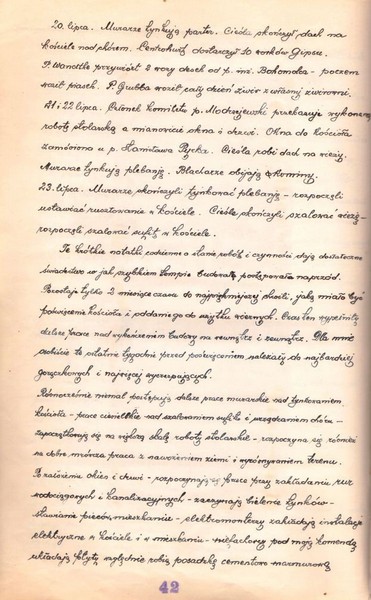 20. lipca. Murarze tynkują parter. Cieśla skończył dach na
kościele nad chórem. Centrohurt dostarczył 10 worków gipsu.
P. Wandtke przywiózł 2 wozy desek od p. inż. Bohomoba - poczem
woził piasek. P. Grubba woził cały dzień żwir z własnej żwirowni.
21 i 22 lipca. Członek Komitetu p. Modrzejewski przekazuje wykonaną
robotę stolarską a mianowicie okna i drzwi. Okna do kościoła
zamówiono u p. Stanisława Pęcka. Cieśla robi dach na wieży.
Murarze tynkują plebanię. Blacharze obijają kominy.
23. lipca. Murarze skończyli tynkować plebanię - rozpoczęli
ustawiać rusztowanie w kościele. Cieśle skończyli szalować wieżę -
rozpoczęli szalować sufit w kościele.
Te krótkie notatki codzienne o stanie robót i czynności dają dostateczne
świadectwo w jak szybkiem tempie budowla postępowała naprzód.
Pozostaje tylko 2 miesiące czasu do najpiękniejszej chwili, jaką miało być
poświęcenie kościoła i oddanie go do użytku wiernych. Czas ten wypełnią
dalsze prace nad wykończeniem budowy na zewnątrz i wewnątrz. Dla mnie
osobiście te ostatnie tygodnie przed poświęceniem należały do najbardziej
gorączkowych i najwięcej wyczerpujących.
Równocześnie niemal postępują dalsze prace murarskie nad tynkowaniem
kościoła - prace ciesielskie nad szalowaniem sufitu i urządzaniem chóru -
zapoczątkowują się na większą skalę roboty stolarskie - rozpoczyna się również
na dobre mozolna praca z nawożeniem ziemi i wyrównywaniem terenu.
Po założeniu okien i drzwi - rozpoczynają się prace przy zakładaniu rur
wodociągowych i kanalizacyjnych - zaczynają bielenie tynków -
stawianie pieców w mieszkaniu - elektromonterzy zakładają instalację
elektryczną w kościele i w mieszkaniu - niefachowcy pod moją komendą
układają płyty, względnie robią posadzkę cementowo-marmurową
42